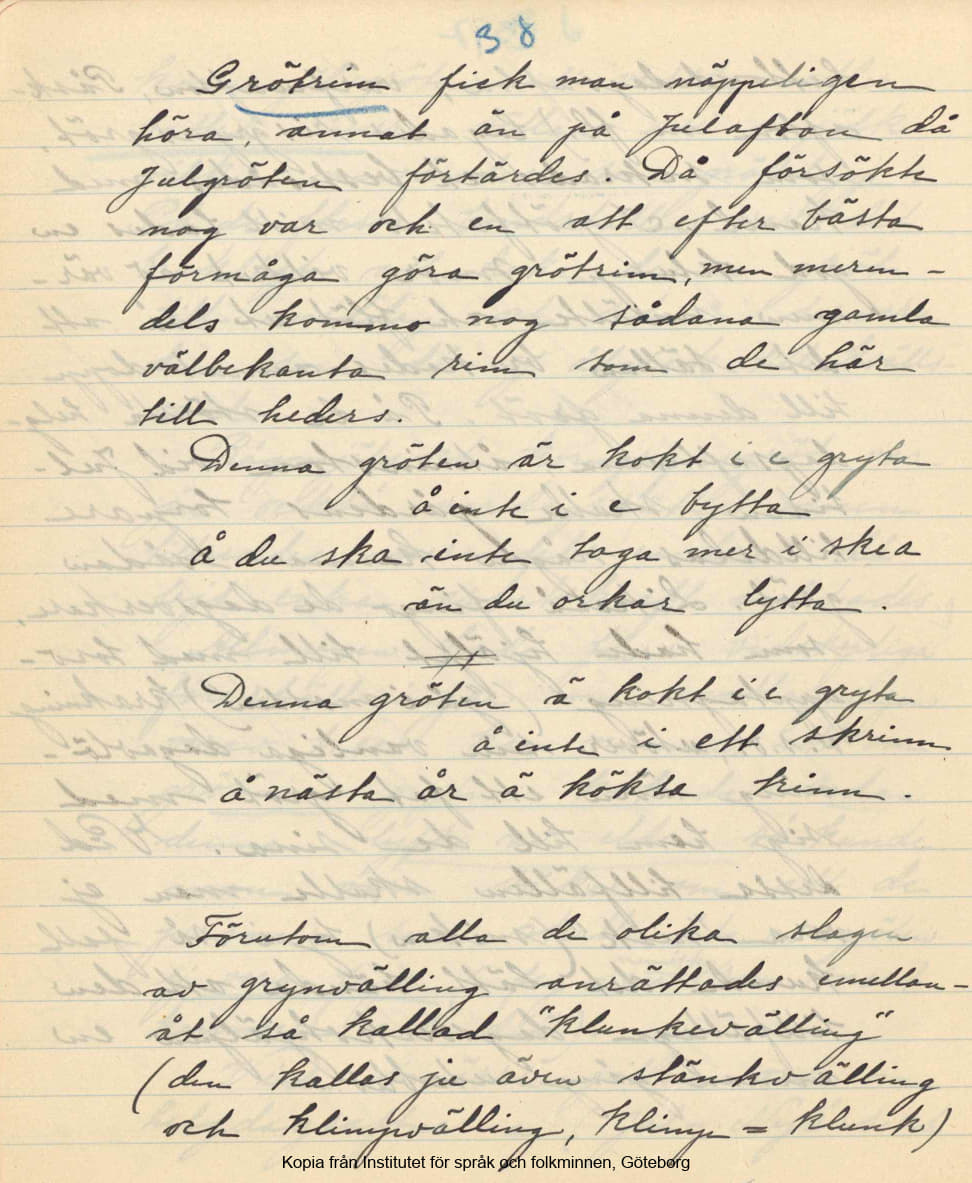 38
Grötrim fick man näppeligen
höra, annat än på Julafton då
Julgröten förtärdes. Då försökte
nog var och en att efter bästa
förmåga göra grötrim, men meren-
dels kommo nog sådana gamla
välbekanta rim som de här
till heders.
Denna gröten är kokt i e gryta
å inte i e bytta
å du ska inte taga mer i skea
än du orkar lytta.
Denna gröten ä kokt i e gryta
å inte i ett skrinn
å nästa år ä köksa kinn.
Förutom alla de olika slagen
av grynvälling anrättades emellan-
åt så kallad "klunkevälling"
(den kallas ju även stänkvälling
och klimpvälling, klimp = klunk)
Kopia från Institutet för språk och folkminnen, Göteborg